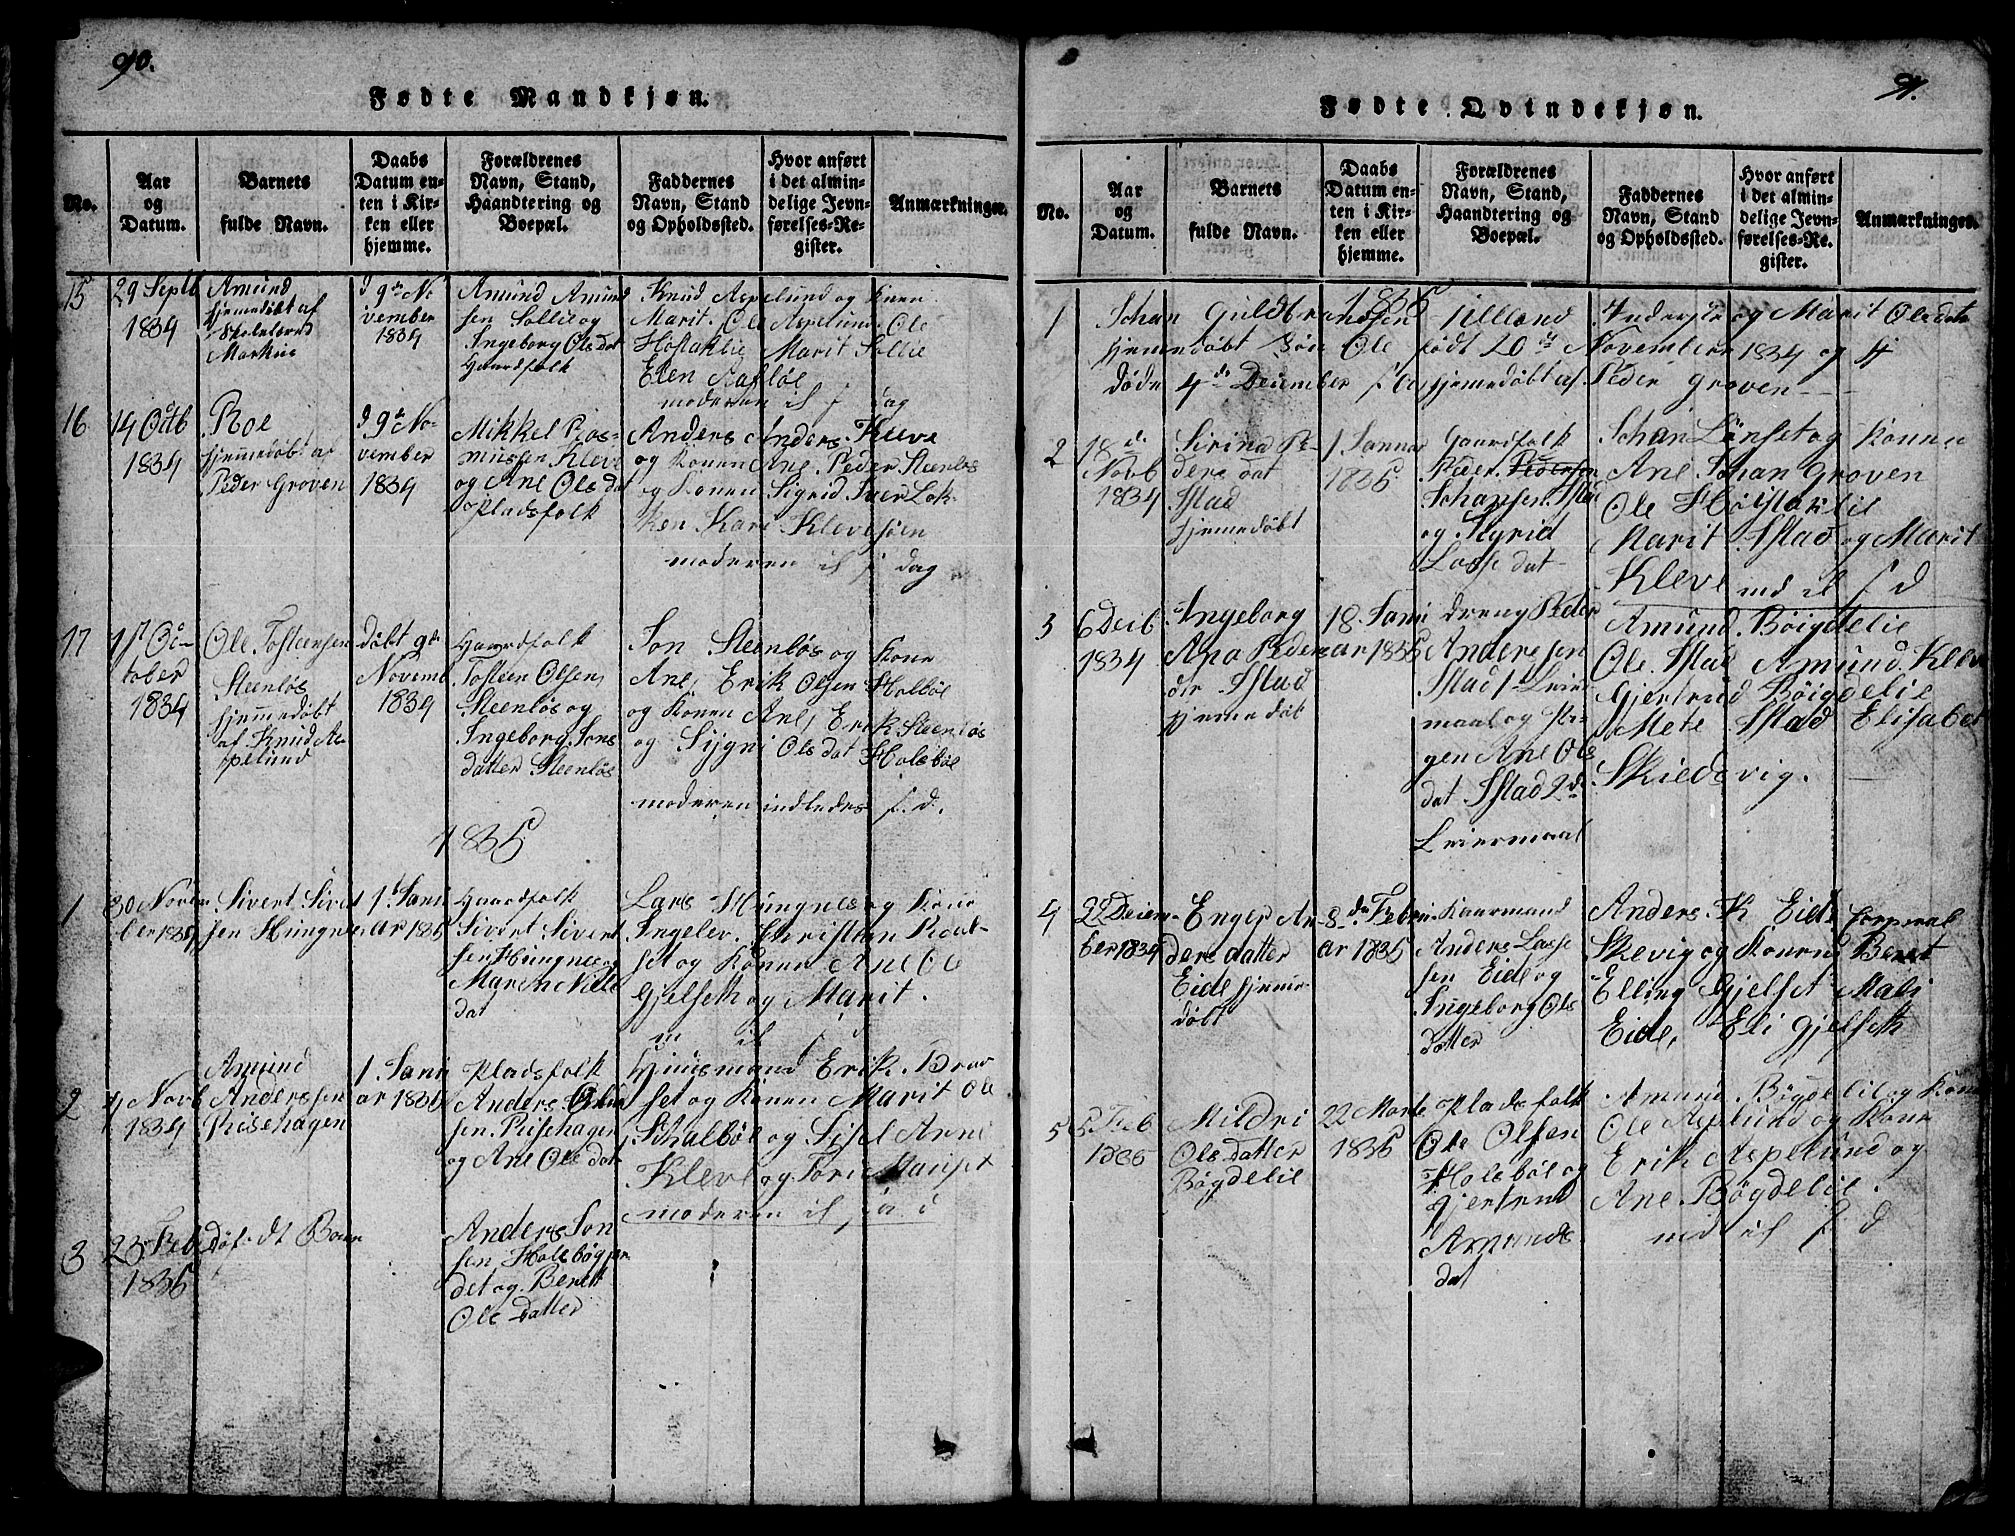 90.
Fødte Mandkjøn.
No.
Aar
og
Datum.
Barnets
fulde Navn.
Daabs
Datum en-
ten i Kir-
ken eller
hjemme.
Forældrenes
Navn, Stand,
Haandtering og
Boepæl.
Faddernes
Navn, Stand
og Opholdssted.
Hvor anført
i det almin-
delige Jevn-
førelses-Re-
gister.
Anmærkninger.
15
29 Septb
1834
Amund
hjemedøbt af
Skolelæred
Markus
d 9de No
vember
1834
Amund Amund
sen Sollie og
Ingeborg Olsdat
Gaardfolk
Knud Aspelund og Konen
Marit. Ole Aspelund. Ole
Hostaklie Marit Sollie
Elen Aafløe
moderen il f dag
16
14 Octb
1834
Roe
hjemedøbt af
Peder Groven
d 9de No-
vember
1834
Mikkel Ras-
mussen Kleve
og Ane Olsdat
Pladsfolk
Anders Anders. Kleve
og Konen Ane, Peder Steenløs
og Konen Sigrid Iver Løk-
ken Kari Kleve
moderen il f dag
17
17 Oc-
tober
1834
Ole Tosteensen
Steenløs
hjemmedøbt
af Knud As-
pelund
døbt 9de
Novemb
1834
Gaardfolk
Tosteen Olsen
Steenløs og
Ingeborg Jons
datter Steenløs
Jon Steenløs og Kone
Ane, Erik Olsen Holbøe
og Konen Ane, Erik Steenløs
og Signi Olsdat Holsbøe
moderen indledes f. d.
1835
1
30 Novem
ber 1834
Sivert Sivert
sen Hungnes
1 Janu
ar 1835
Gaardfolk
Sivert Sivert
sen Hungnes og
Maren Nils
dat
Lars Hungnes og Kone
Ingelev. Christian Roal-
set og Konen Ane Ole
Gjelseth og Marit.
m il f d
2
4 Novb
1834
Amund
Anderssen
Risehagen
1. Janu
ar 1835
Pladsfolk
Anders Amun
sen Risehagen
og Ane Olsdat
Huusmand Erik. Brav
set og Konen Marit Ole
Skalbøe og Sisel Arne
Kleve og Tore
moderen il f d
3
23 Feb
1835
Døfødt Barn
Anders Jon
sen Holsbøe
det og Berett
Ole Datter
91.
Fødte Qvindekjøn.
No.
Aar
og
Datum.
Barnets
fulde Navn.
Daabs
Datum en-
ten i Kir-
ken eller
hjemme.
Forældrenes
Navn, Stand,
Haandtering og
Boepæl.
Faddernes
Navn, Stand
og Opholdssted.
Hvor anført
i det almin-
delige Jevn-
førelses-Re-
gister.
Anmærkninger.
1835
1
Johan Guldbrandsen Ulland og Marit Olsdat
hjemedøbt Søn Ole født 20de November 1834 og
døde 4de December hjemedøbt af Peder Groven
2
18de
Novb
1834
Sirina Pe-
ders dat
Istad
hjemedøbt
1 Januar
1835
Gaardfolk
Peder Pedersen
Johansen Istad
og Sigrid
Lasse dat
Johan Lønset og Konen
Ane Johan Groven
Ole Høstaklie
Marit Istad og Marit
Kleve md il f d
3
6 Decb
1834
Ingeborg
Ana Peders
der Istad
hjemedøbt
18. Janu
ar 1835
dreng Peder
Anderssen
Istad 1. Leier
maal og Pi-
gen Ane Ole
dat Istad 2de
Leiermaal
Amund. Bøigdelie
Ole Istad Amund. Kleve
Gjertrud Bøigdelie
Mete Istad Elisabet
Skiedsvig.
4
22 Decem
ber 1834
Enger An
dersdatter
Eide hjemme
døbt
8de Febru
ar 1835
Kaarmand
Anders Lasse
sen Eide og
Ingeborg Ols
datter
Anders K Eide Corporal
Skevig og Konen Beret
Elling Gjelset Mali
Eide, Eli Gjelseth
5
5 Feb
1835
Mildri
Olsdatter
Bøgdelie
22 Marts
1835
Pladsfolk
Ole Olsen
Holsbøe og
Gjertrud
Amunds
dat
Amund. Bøgdelie og Kone
Ole Aspelund og Kone
Erik Aspelund og
Ane Bøgdelie.
md il f d